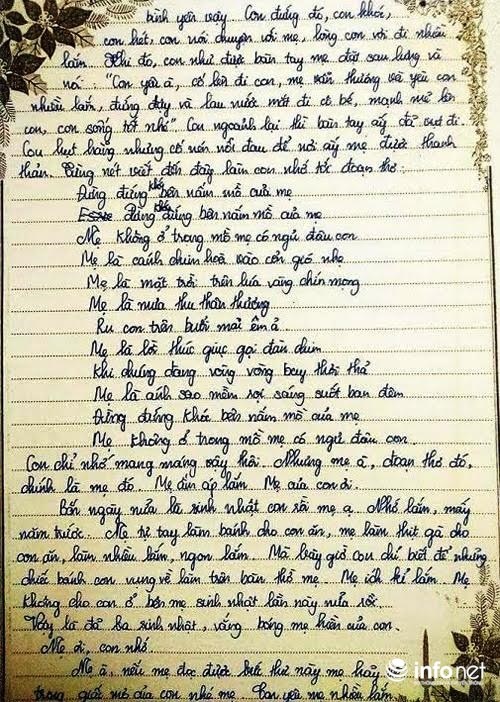 bình yên vậy. Con đứng đó, con khóc,
con hét, con nói chuyện với mẹ, lòng con vơi đi nhiều
lắm. Khi đó, con như được bàn tay mẹ đặt sau lưng và
nói: "Con yêu à, cố lên đi con, mẹ vẫn thương và yêu con
nhiều lắm, đứng dậy và lau nước mắt đi cô bé, mạnh mẽ lên
con, con sống tốt nhé". Con ngoảnh lại thì bàn tay ấy đã vụt đi.
Con hụt hẫng nhưng cố nén nỗi đau để nơi ấy mẹ được thanh
thản. Từng nét viết đến đây làm con nhớ tới đoạn thơ:
Đừng đứng khóc bên nấm mồ của mẹ
đừng đứng bên nấm mồ của mẹ
Mẹ không ở trong mồ mẹ có ngủ đâu con
Mẹ là cánh chim hoà vào cơn gió nhẹ
Mẹ là mặt trời trên lúa vàng chín mọng
Mẹ là mưa thu thân thương
Ru con trên buổi mai êm ả
Mẹ là lời thúc giục gọi đàn chim
Khi chúng đang vòng vòng bay thời thả
Mẹ là ánh sao mềm rọi sáng suốt ban đêm
Đừng đứng khóc bên nấm mồ của mẹ
Mẹ không ở trong mồ mẹ có ngủ đâu con
Con chỉ nhớ mang máng vậy thôi. Nhưng mẹ à, đoạn thơ đó,
chính là mẹ đó. Mẹ ấm áp lắm. Mẹ của con ơi.
Bốn ngày nữa là sinh nhật con rồi mẹ ạ. Nhớ lắm, mấy
năm trước. Mẹ tự tay làm bánh cho con ăn, mẹ làm thịt gà cho
con ăn, làm nhiều lắm, ngon lắm. Mà bây giờ con chỉ biết để những
chiếc bánh con vụng về làm trên bàn thờ mẹ. Mẹ ích kỉ lắm. Mẹ
không cho con ở bên mẹ sinh nhật lần này nữa rồi.
Vậy là đã ba sinh nhật, vắng bóng mẹ hiền của con.
Mẹ ơi, con nhớ.
Mẹ à, nếu mẹ đọc được bức thư này mẹ hãy
trong giấc mơ của con nhé mẹ. Con yêu mẹ nhiều lắm.
infonet